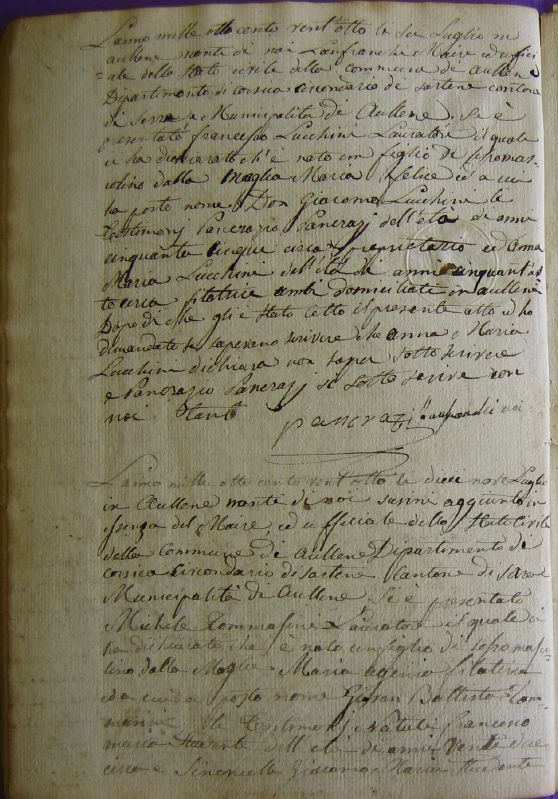 L'anno mille otto cento vent'otto li sei Luglio in
aullene nanti di noi Lanfranchi Maire ed uffici
=ale dello stato civile della commune di aullene
Dipartimento di corsica circondario di sartene cantone
di Serra e Municipalità di Aullene. Se è
presentato francesco Lucchini Lavratore il quale
ci ha dichierato ch'è nato un figlio di sesso mas
colino dalla Moglia Maria felice ed a cui
ha posto nome Don Giacomo Lucchini le
Testimonj Pancrazio Pancrazj dell'età di anni
cinquanta cinque circa proprietario ed Anna
Maria Lucchini dell'età di anni cinquant'ot
to circa filatrice ambi domiciliati in aullene
Dopo di che gli è stato letto il presente atto ed ho
dimandato se sapevano scrivere che anna Maria
Lucchini dichiara non saper sotto scrivere
e Pancrazio Pancrazj si sotto scrive con
noi
pancrazi
L'anno mille otto cento vent'otto le dieci nove Luglio
in Aullene nante di noi aggiunto in
assenza del Maire, ed ufficiale dello stato Civile
della Commune di Aullene Dipartimento di
corsica circondario di sartene Cantone di
Municipalità di Aullene. Sè è presentato
Michele Tommasini Lavratore il quale ci
ha dichiarato che è nato un figlio di sesso mascu
lino dalla Moglie Maria filatrice
ed a cui a posto nome Giovan Battista Tom
masini le Testimonj francesco
maria dell'età di anni vente due
circa e Giacomo Maria